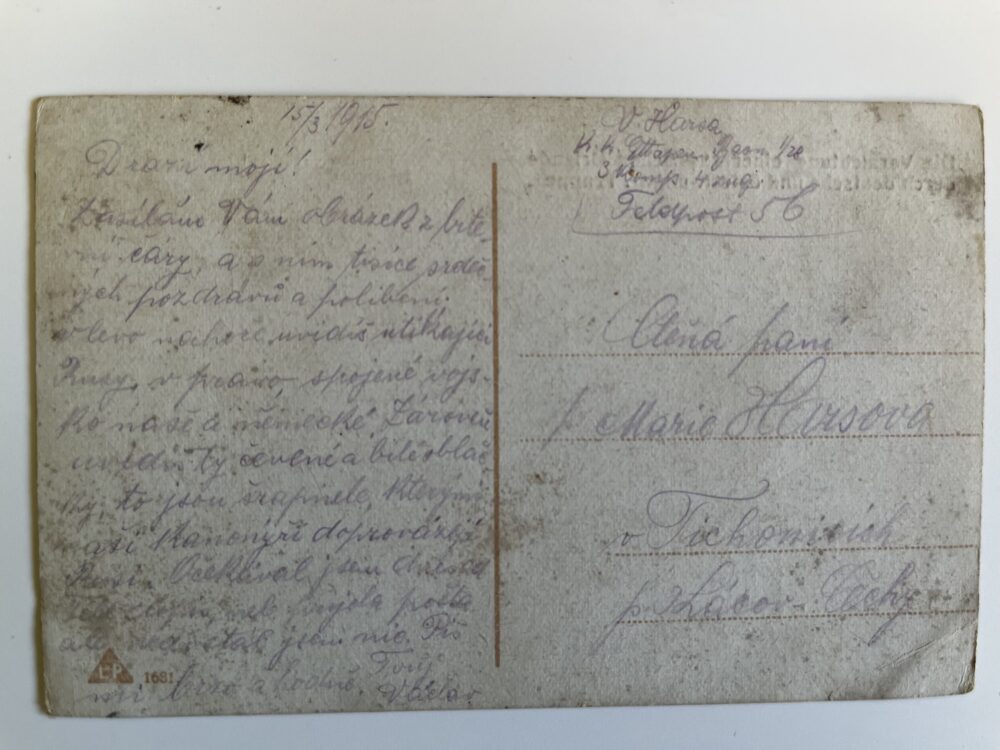 15/3 1915.
Drazí mojí!
Zasílám Vám obrázek z bite-
vní čáry, a s ním tisíce srdeč-
ných pozdravů a políbení.
v levo nahoře uvidíš utíkající
Rusy, v pravo, spojené vojs-
ko naše a německé. Zároveň
uvidíš ty červené a bílé obláč-
ky, to jsou šrapnele, kterými
naší kanonýři doprovázejí
Rusi. Očekával jsem dnes
pošta
ale nedostal jsem nic. Piš
mi brzo a hodně. Tvůj
Václav
L&P 1681
V Harsa
K. k. Ettapen Baon
3 Komp. 4 zug
Feldpost 56
Ctěná paní
p. Marie Harsova
v Tichonicích
p. Zlácov Čechy